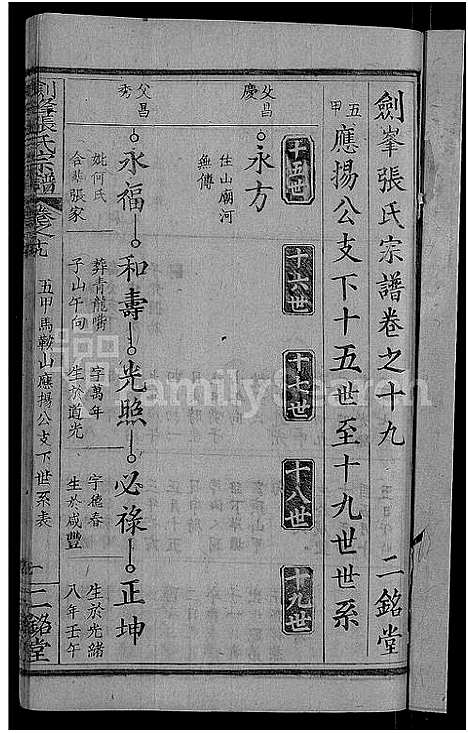 劍峯張氏宗譜卷之十九 二銘堂
五甲 應揚公支下十五世至十九世世系
十五世 十六世 十七世 十八世 十九世
父昌慶 永方
住山廟河
無傳
父昌秀 永福 和壽 光照 必祿 正坤
妣何氏
合葬張家
葬青龍嘴
子山午向
字萬年
生於道光
字德春
生於咸豐
生於光緒
八年壬午
劍峯張氏宗譜 卷之十九 五甲馬鞍山應揚公支下世系表 一 二銘堂
FamilySearch